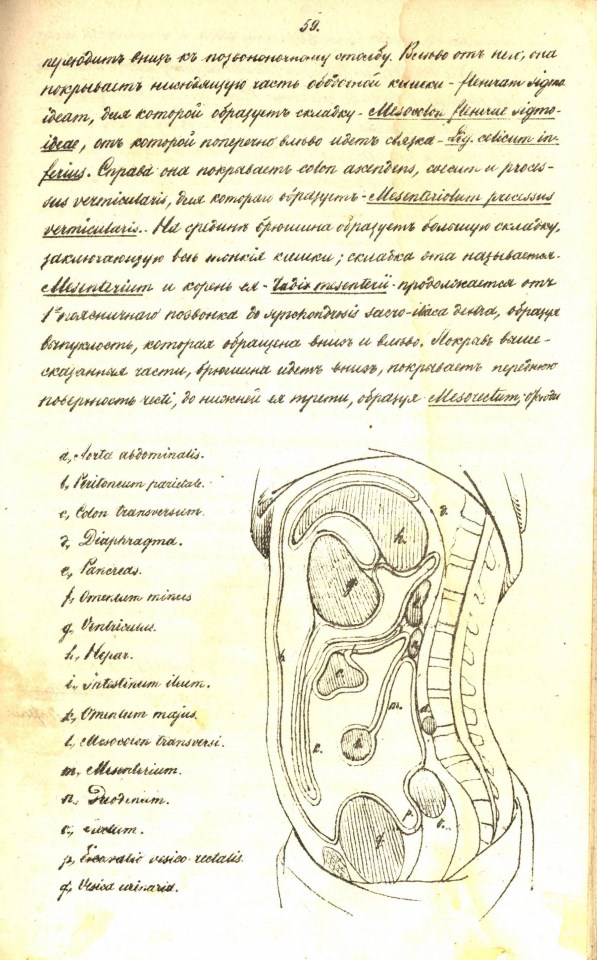 59.
переходитъ внизъ къ позвоночному столбу. Влѣво отъ нея, она
покрываетъ нисходящую часть ободочной кишки - flexuram sigmo-
ideam, для которой образуетъ складку - Mesocolon flexurae sigmo-
ideae, отъ которой поперечно влѣво идетъ связка - Lig. colicum in-
ferius. Справа она покрываетъ colon ascendens, coecum и proces-
sus vermicularis, для которой образуетъ - Mesenteriolum processus
vermicularis. На срединѣ брюшина образуетъ большую складку,
заключающую всѣ тонкія кишки; складка эта называется -
Mesenterium и корень ея - Radix mesenterii - продолжается отъ
1го поясничнаго позвонка до synchondrosis sacro-iliaca dextra, образуя
выпуклость, которая обращена внизъ и влѣво. Покрывъ выше-
сказанныя части, брюшина идетъ внизъ, покрываетъ переднюю
поверхность recti, до нижней ея трети, образуя Mesorectum;
a, Aorta abdominalis.
b, Peritoneum parietale.
c, Colon transversum.
d, Diaphragma.
e, Pancreas.
f, Omentum minus
g, Ventriculus.
h, Hepar.
i, Intestinum ileum.
k, Omentum majus.
l, Mesocolon transversi.
m, Mesenterium.
n, Duodenum.
o, rectum.
p, Excavatio vesico-rectalis.
q, Vesica urinaria.
h.
g.
c.
m.
k.
p.
q.